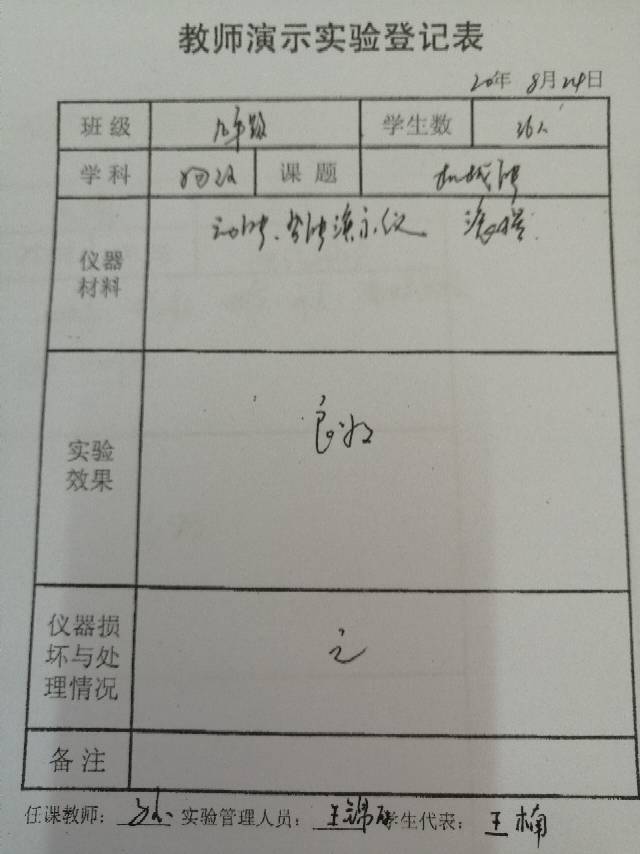 教师演示实验登记表
20年 8月24日
班级 九年级 学生数 36人
学科 物理 课题 机械能
仪器材料 动能、势能演示仪
实验效果 良好
仪器损坏与处理情况 无
备注
任课教师： 实验管理人员：王锦 学生代表：王楠